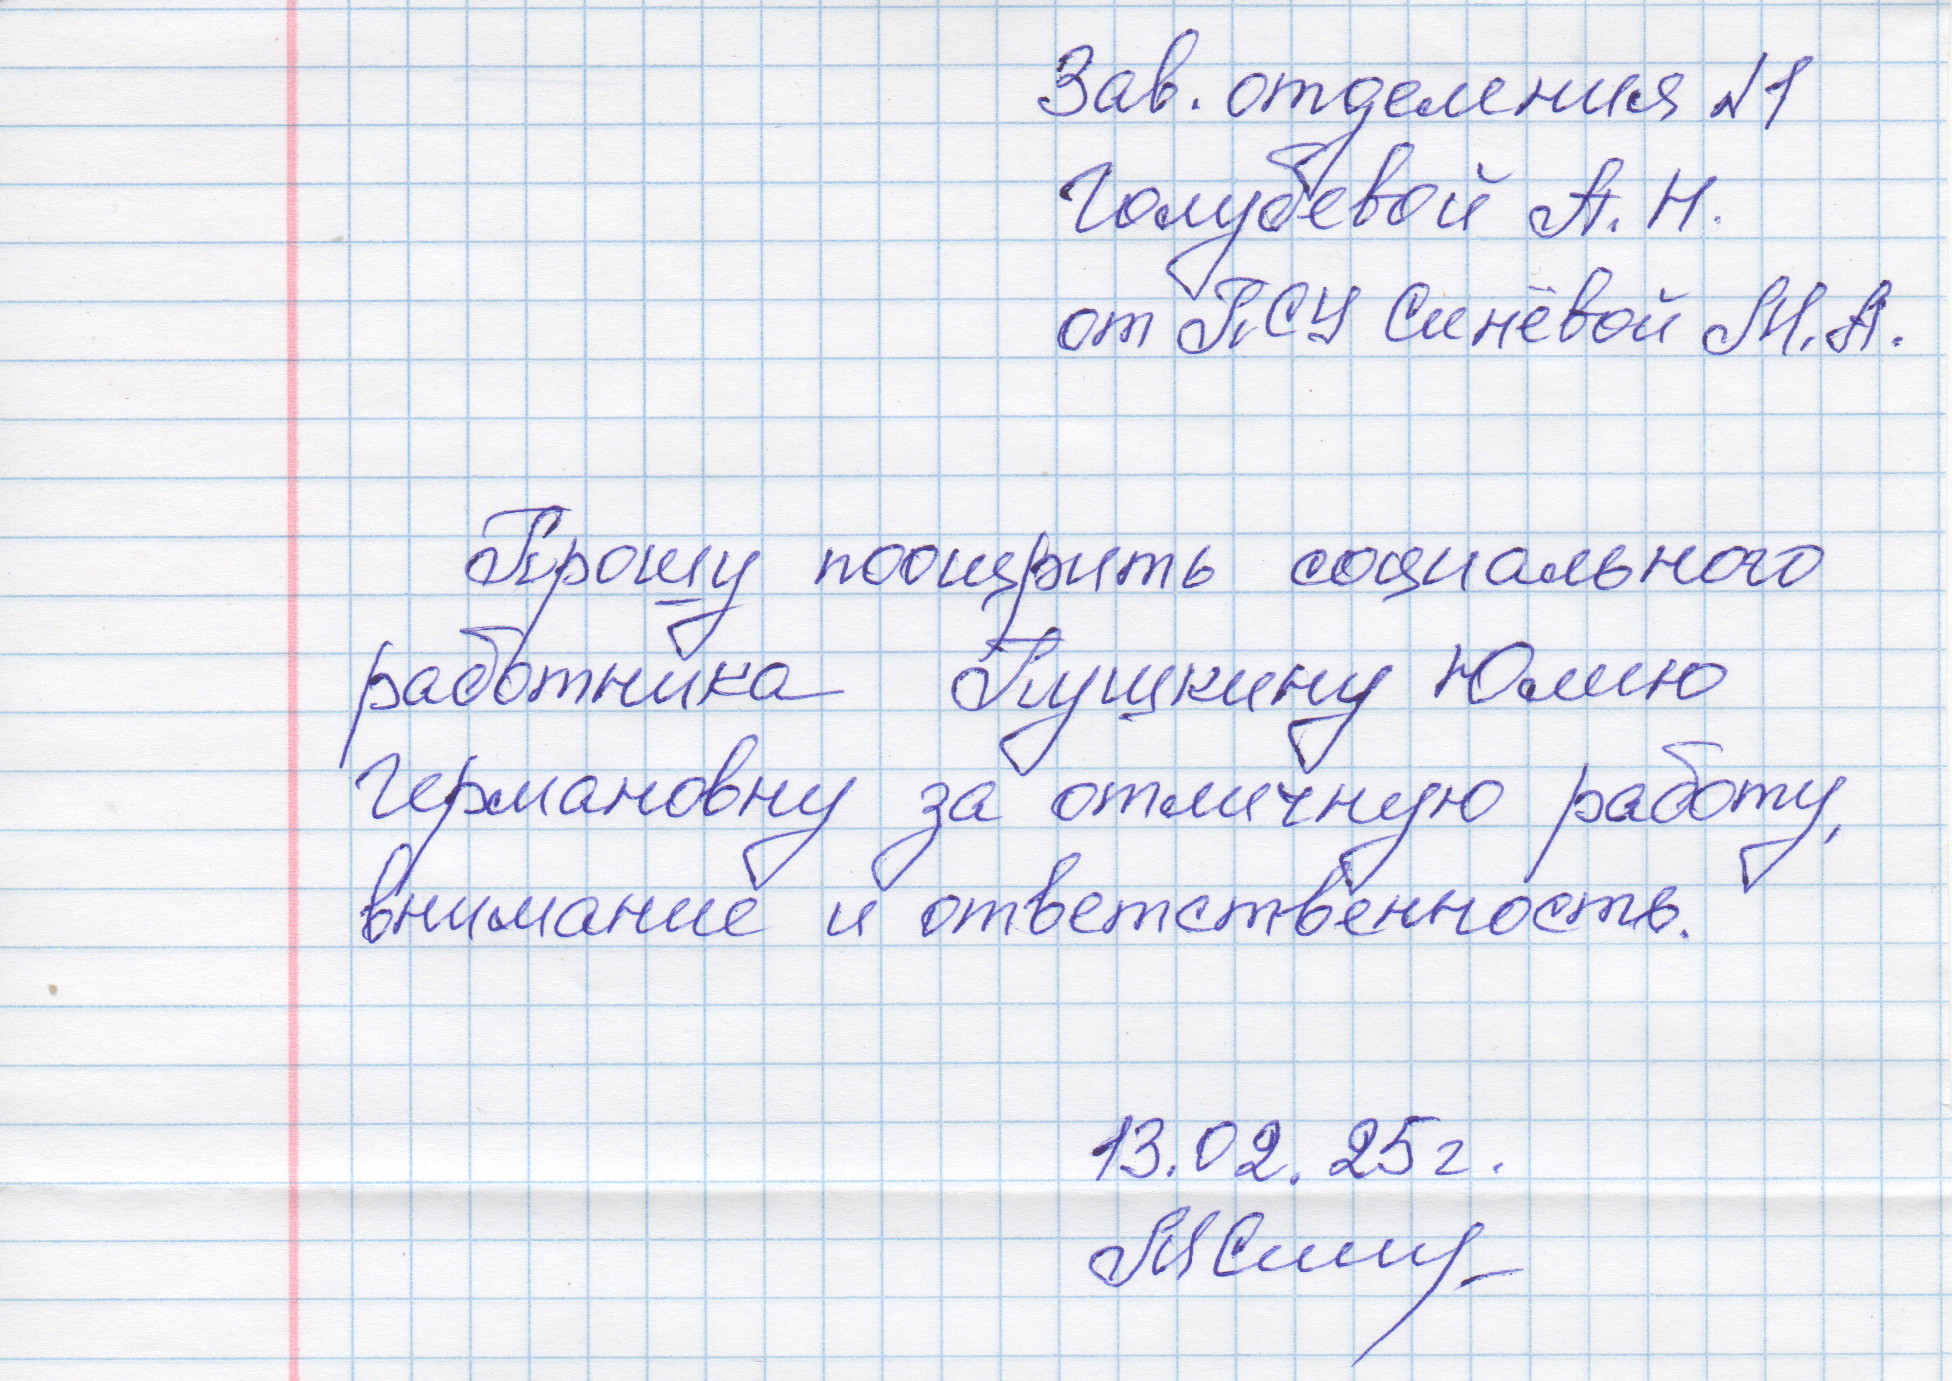 Зав. отделения №1
Голубевой А. Н.
от ПСУ Синёвой М. А.
Прошу поощрить социального
работника Пушкину Юлию
Германовну за отличную работу,
внимание и ответственность.
13.02.25г.